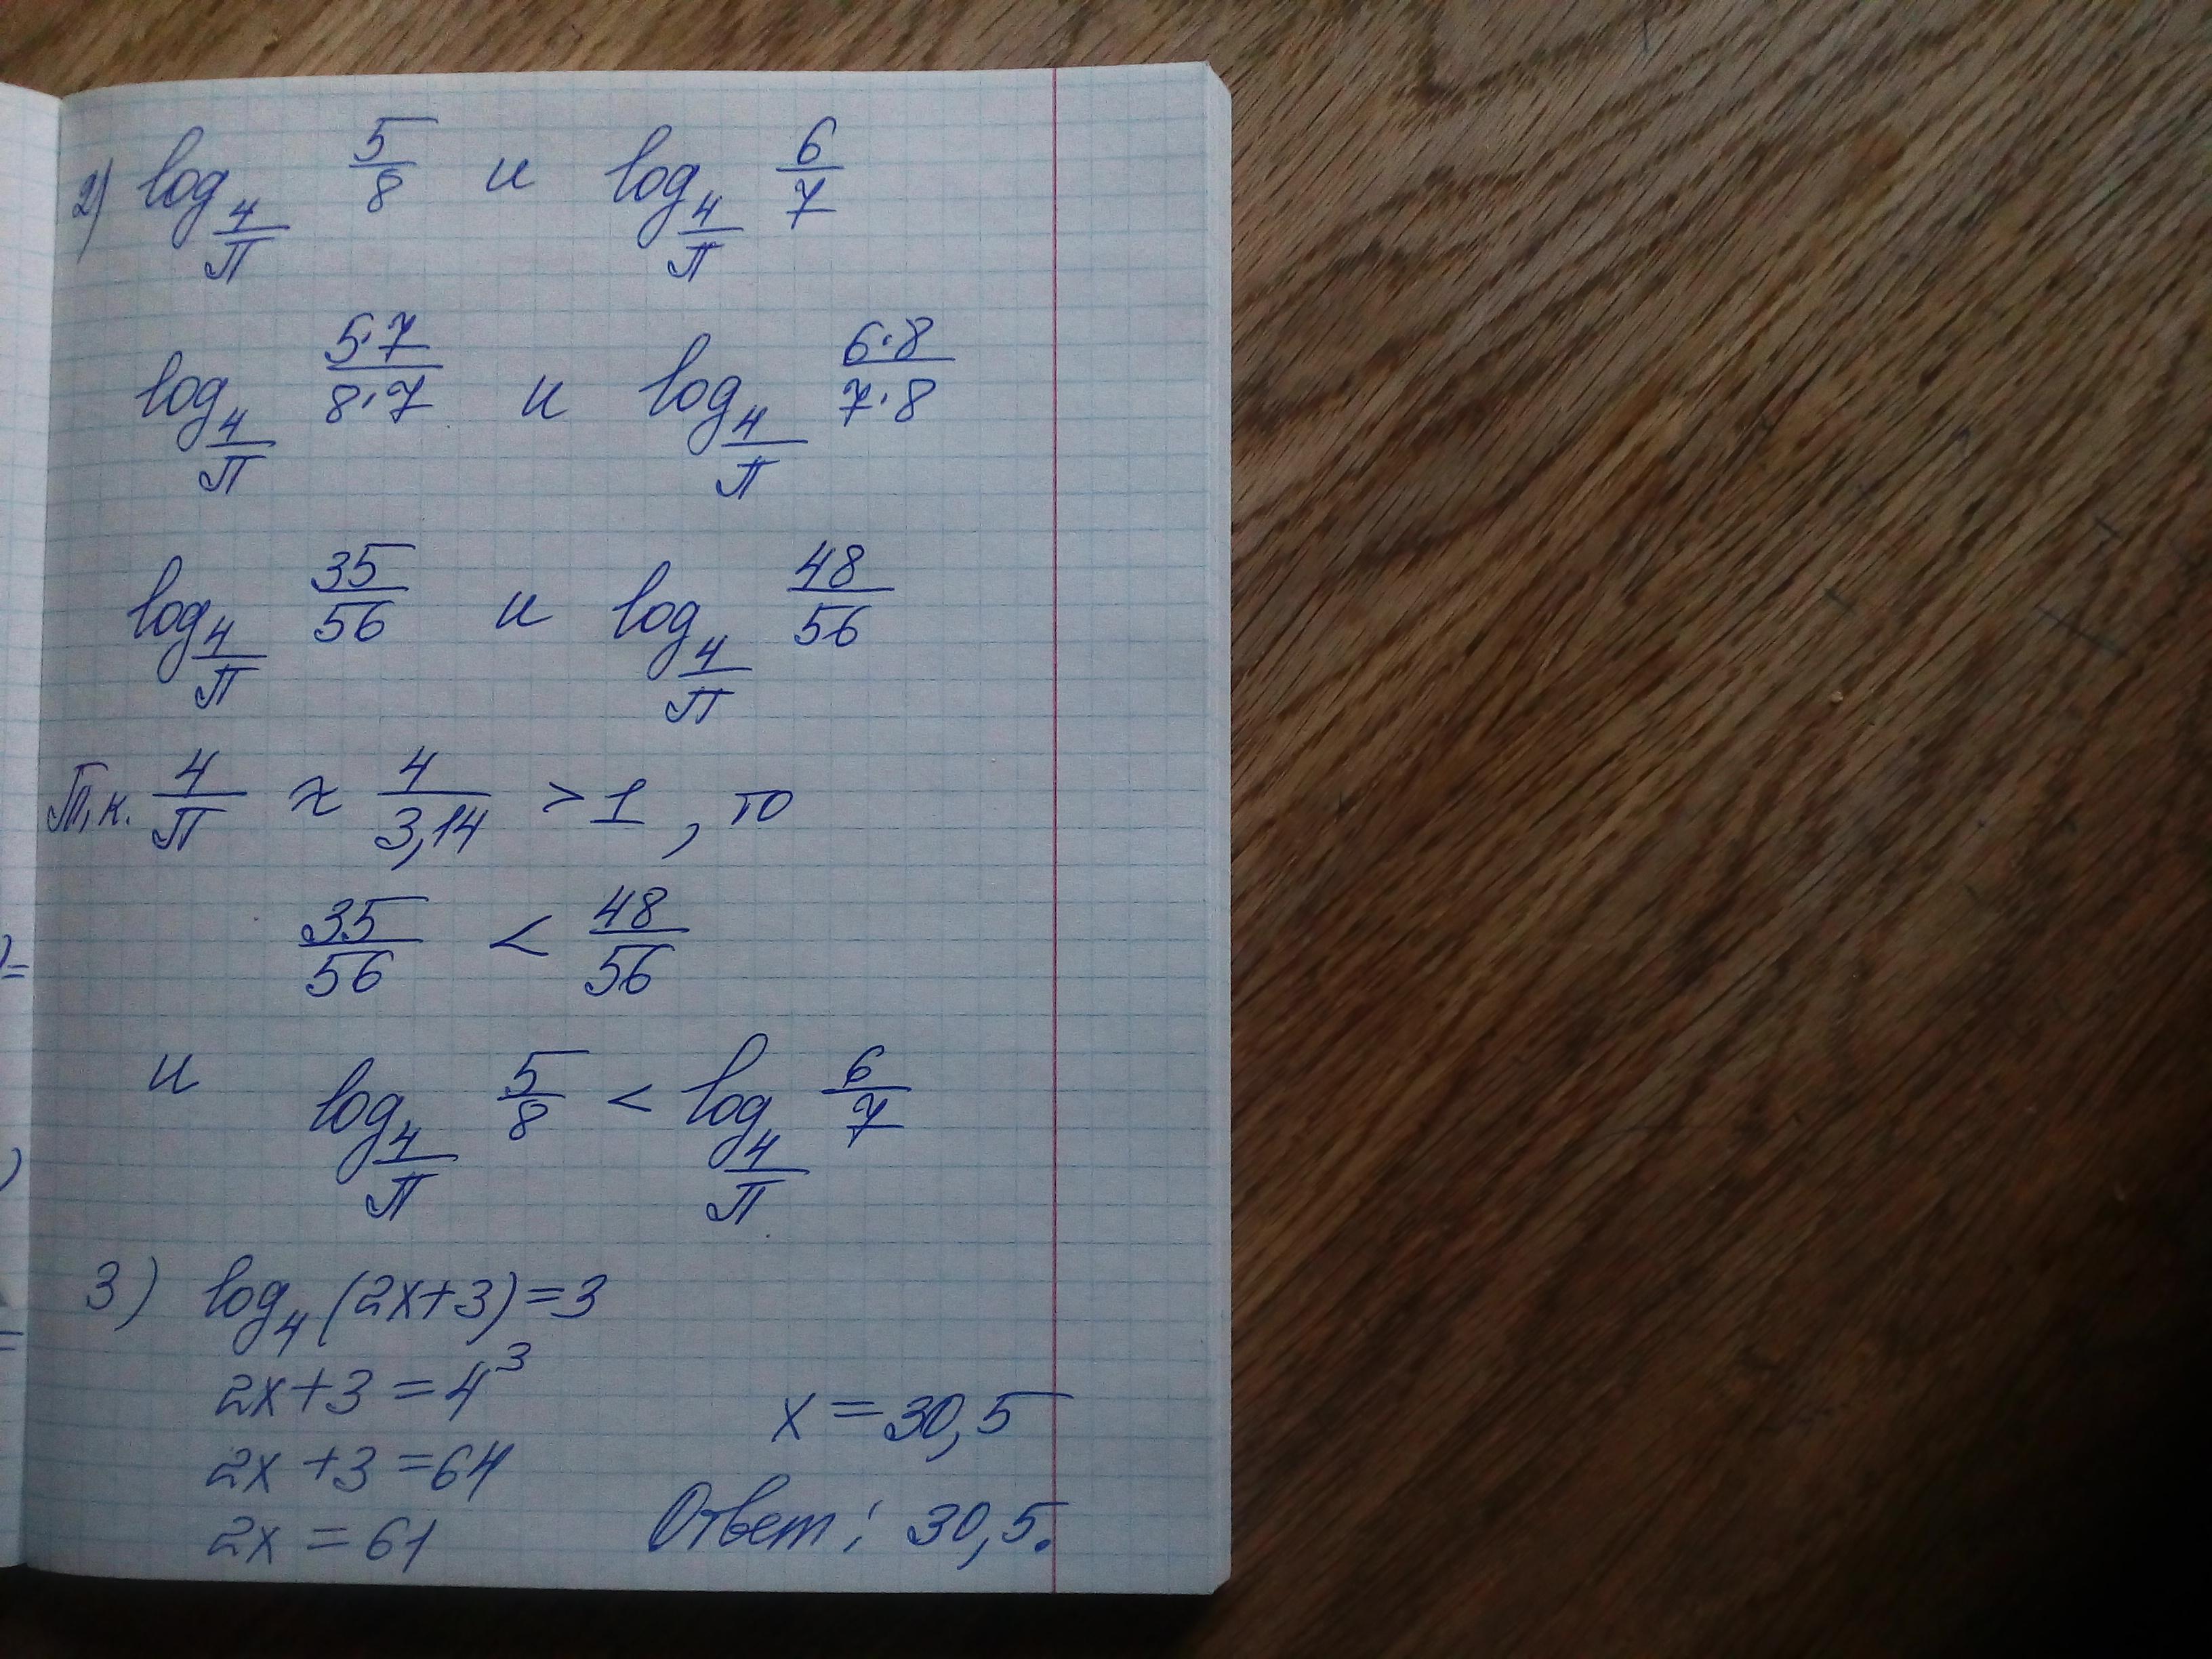 2) log_{4/π} 5/8 и log_{4/π} 6/7
log_{4/π} 5·7/8·7 и log_{4/π} 6·8/7·8
log_{4/π} 35/56 и log_{4/π} 48/56
Т.к. 4/π ≈ 4/3,14 > 1, то
35/56 < 48/56
и log_{4/π} 5/8 < log_{4/π} 6/7
3) log_4 (2x+3)=3
2x+3=4^3
2x+3=64
2x=61
x=30,5
Ответ: 30,5.